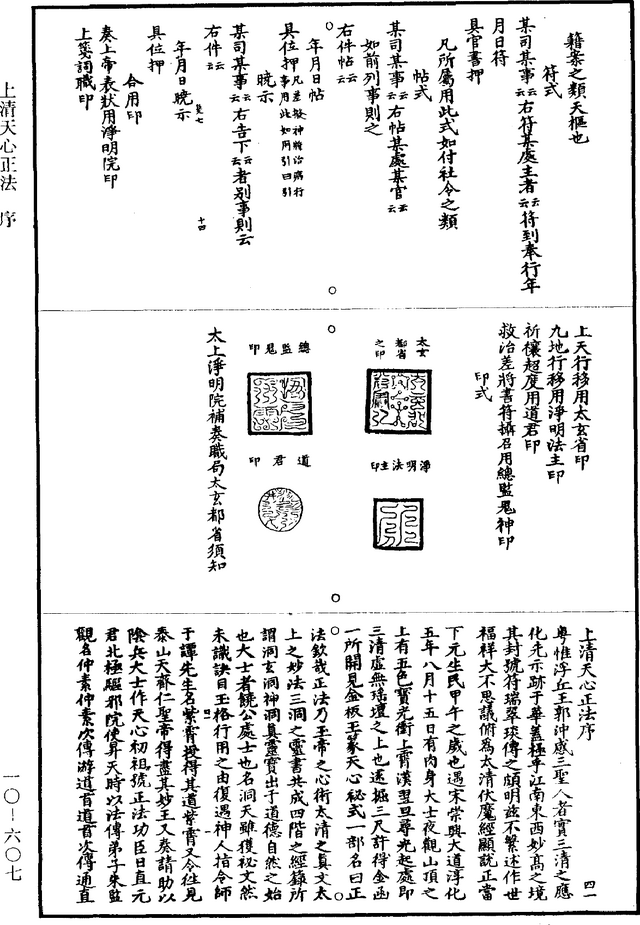 籍案之類天樞也
符式
某司某事云云右符某處主者云云符到奉行年
月日符
具官書押
凡所屬用此式如付社令之類
帖式
某司某事云云右帖某處某官云云
如前列事則之
右件帖云云
年月日帖
具位押凡差撥神將治病行事用此如所引曰引
曉示
某司某事云云右告下云云者别事則云
右件云云
年月日曉示
具位押
合用印
奏上帝表狀用淨明院印
上箋詞職印
上天行移用太玄省印
九地行移用淨明法主印
祈禳超度用道君印
救治差將書符攝召用總監鬼神印
印式
太玄都省之印
淨明法主印
總監鬼印
道君印
太上淨明院補奏職局太玄都省須知
上清天心正法序
粤惟浮丘王郭沖感三聖人者實三清之應
化先示跡于華蓋極乎江南東西妙高之境
其封號符瑞翠琰傳之頗明茲不繁述作世
福祥大不思議俯為太清伏魔經顯說正當
下元生民甲午之歲也遇宋崇興大道淳化
五年八月十五日有肉身大士夜觀山頂之
上有五色寶光衝上霄漢翌旦尋光起處即
三清虛無瑶壇之上也遂掘三尺許得金函
一所開見金板玉篆天心秘式一部名曰正
法欽哉正法乃玉帝之心術太清之真文太
上之妙法三洞之靈書共成四階之經籙所
謂洞玄洞神洞真靈寶出于道德自然之始
也大士者饒公處士也名洞天雖獲秘文然
未識訣目玉格行用之由復遇神人指令師
于譚先生名紫霄授得其道紫霄又令往見
泰山天齊仁聖帝得盡其妙王又奏請助以
陰兵大士作天心初祖號正法功臣日直元
君北極驅邪院使昇天時以法傳弟子朱監
觀名仲素仲素次傳游道首道首次傳通直
上清天心正法　序
一〇－六〇七
四一